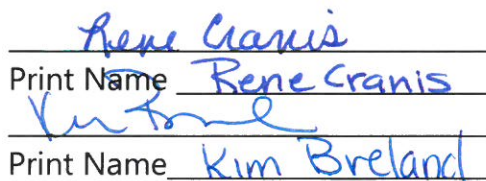 Rene Cranis
Print Name Rene Cranis
Print Name Kim Breland